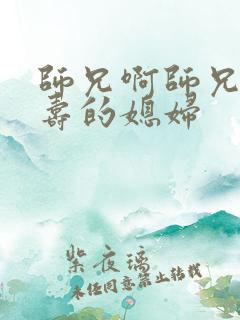 師兄啊師兄
壽的媳婦
紫夜璃
未经同意禁止转载